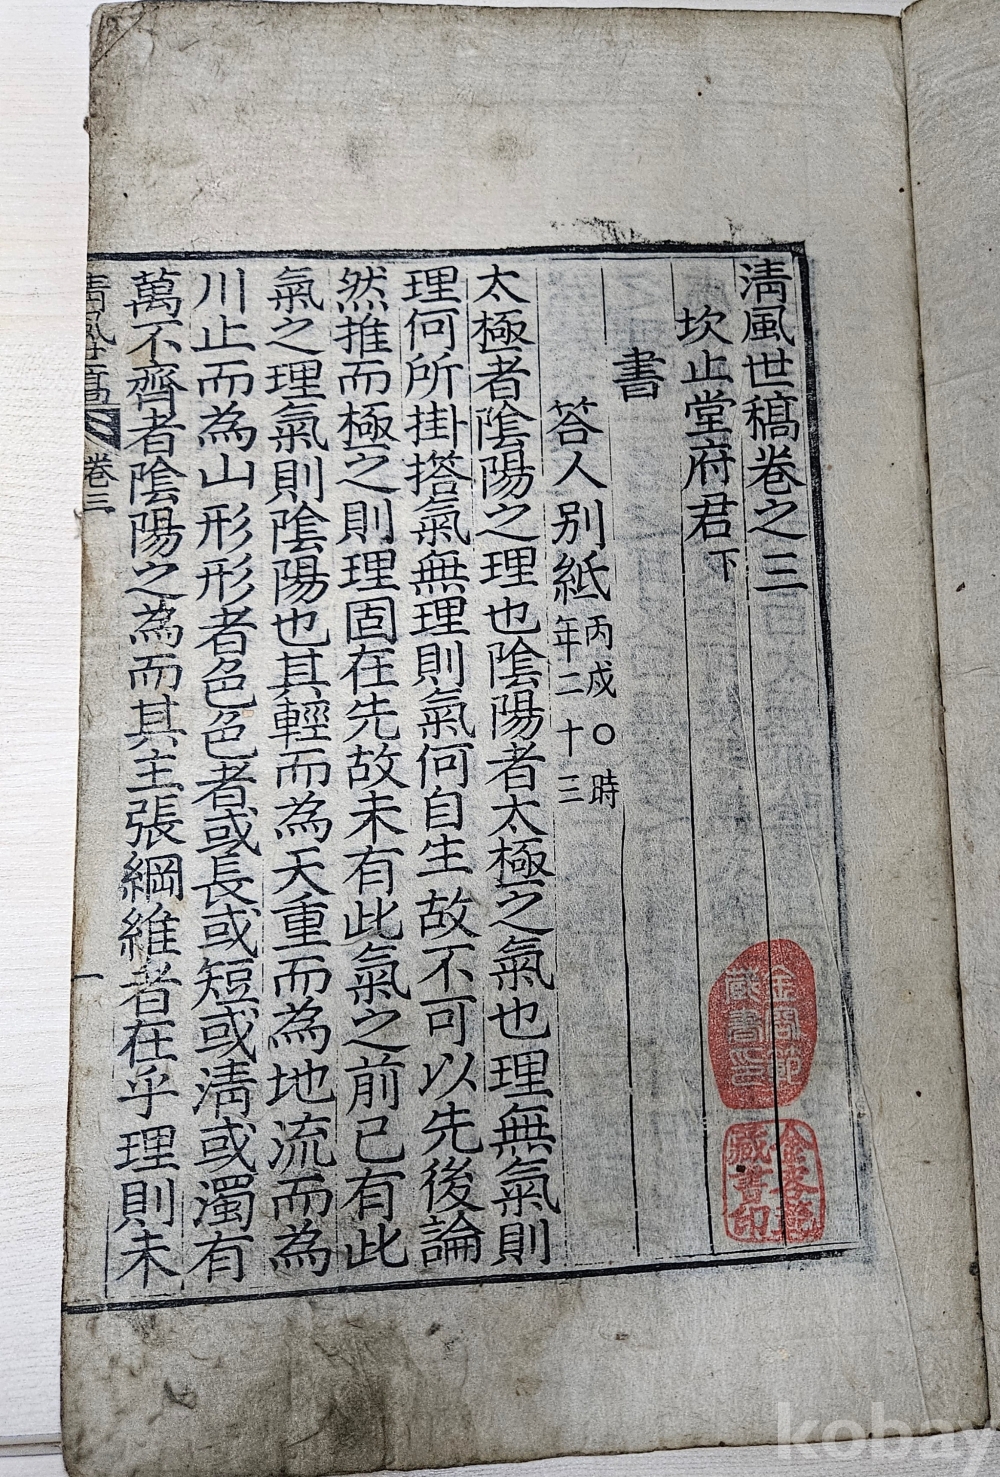 淸風世稿卷之三
坎止堂府君 下
書
答人別紙 丙戌〇時
年二十三
太極者陰陽之理也陰陽者太極之氣也理無氣則
理何所掛搭氣無理則氣何自生故不可以先後論
然推而極之則理固在先故未有此氣之前已有此
氣之理氣則陰陽也其輕而為天重而為地流而為
川止而為山形形者色色者或長或短或淸或濁有
萬不齊者陰陽之為而其主張綱維者在乎理則未
淸風世稿 卷三
一
藏書印
kobay